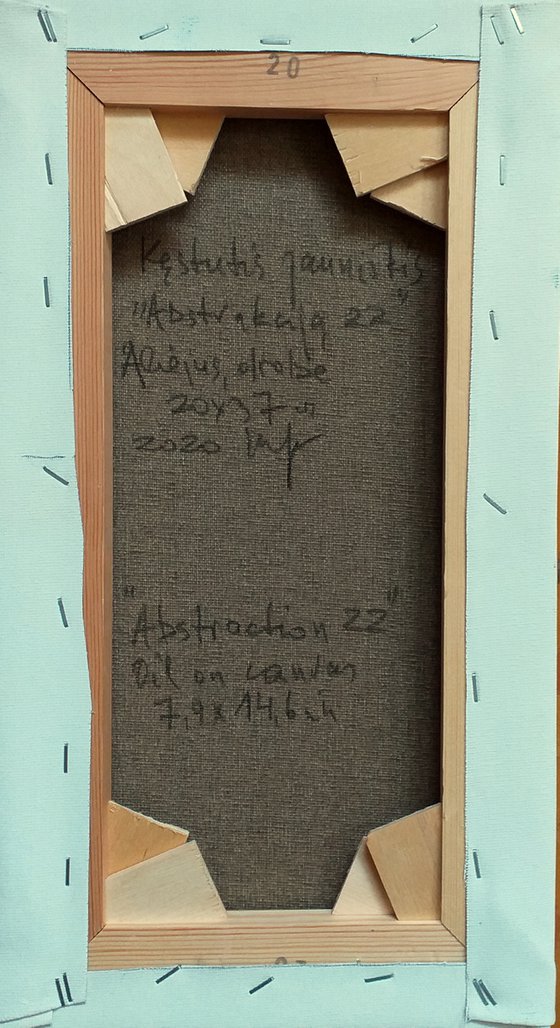 20
Kęstutis Jauniškis
"Abstrakcija 22"
Aliejus, drobė
20x37
2020
"Abstraction 22"
Oil on canvas
7,9 x 14,6 in